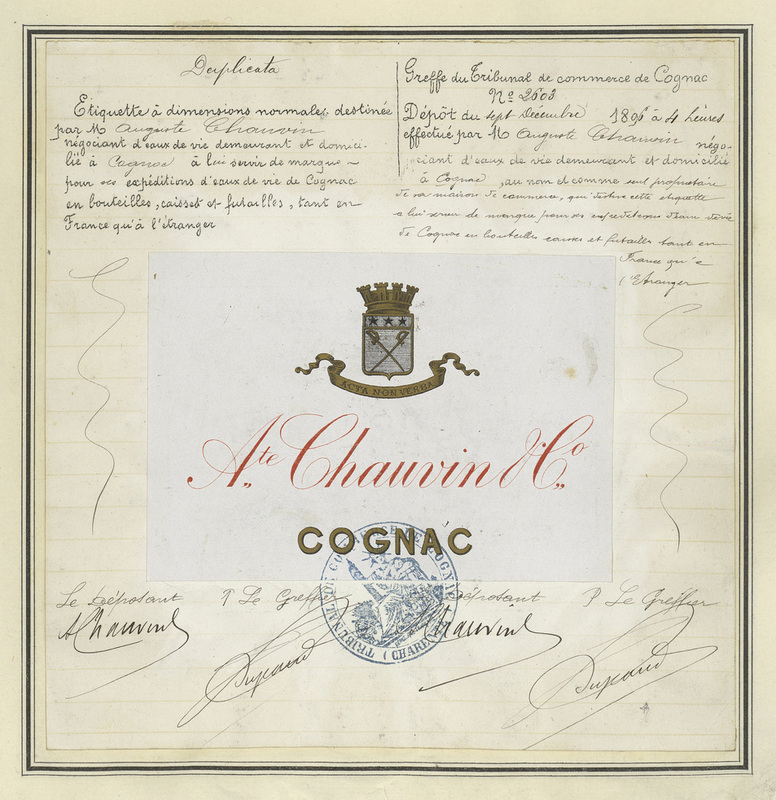 Duplicata
Etiquette à dimensions normales destinée
par M Auguste Chauvin
négociant d'eaux de vie demeurant et domici-
lié à Cognac à lui servir de marque ~
pour ses expéditions d'eaux de vie de Cognac
en bouteilles, caisses et futailles, tant en
France qu'à l'étranger
Greffe du Tribunal de commerce de Cognac
Nº 2603
Dépôt du sept Décembre 1896 à 4 heures
effectué par M Auguste Chauvin négo-
ciant d'eaux de vie demeurant et domicilié
à Cognac, au nom et comme seul propriétaire
de sa maison de commerce, qui destine cette etiquette
a lui servir de marque pour ses expeditions d'eaux de vie
de Cognac en bouteilles caisses et futailles tant en
France qu'a
l'Etranger
ACTA NON VERBA
Ate Chauvin & Co
COGNAC
TRIBUNAL DE COMMERCE DE COGNAC
(CHARENTE)
Le déposant P Le Greffier déposant P Le Greffier
AChauvin Chauvin